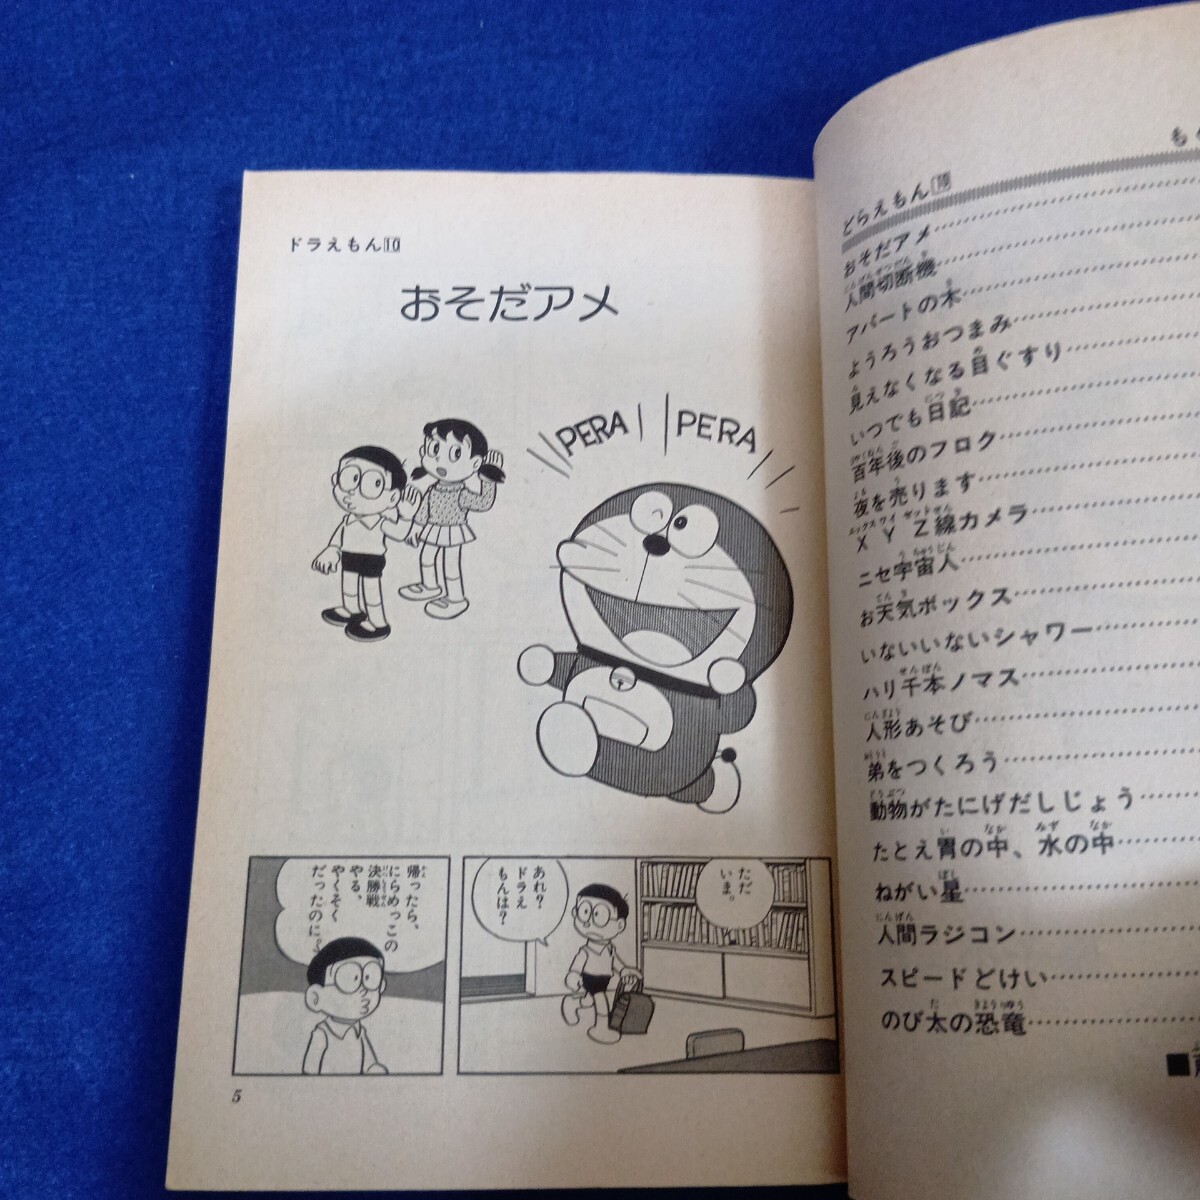 も
どらえもん⑩
おそだアメ
人間切断機
アパートの木
ようろうおつまみ
見えなくなる目ぐすり
いつでも日記
百年後のフロク
夜を売ります
XYZ線カメラ
ニセ宇宙人
お天気ボックス
いないいないシャワー
ハリ千本ノマス
人形あそび
弟をつくろう
動物がたにげだしじょう
たとえ胃の中、水の中
ねがい星
人間ラジコン
スピードどけい
のび太の恐竜
ドラえもん10
おそだアメ
PERA PERA
ただ
いま。
あれ?
ドラえ
もんは?
帰ったら、
にらめっこの
決勝戦
やる、
やくそく
だったのに。
5